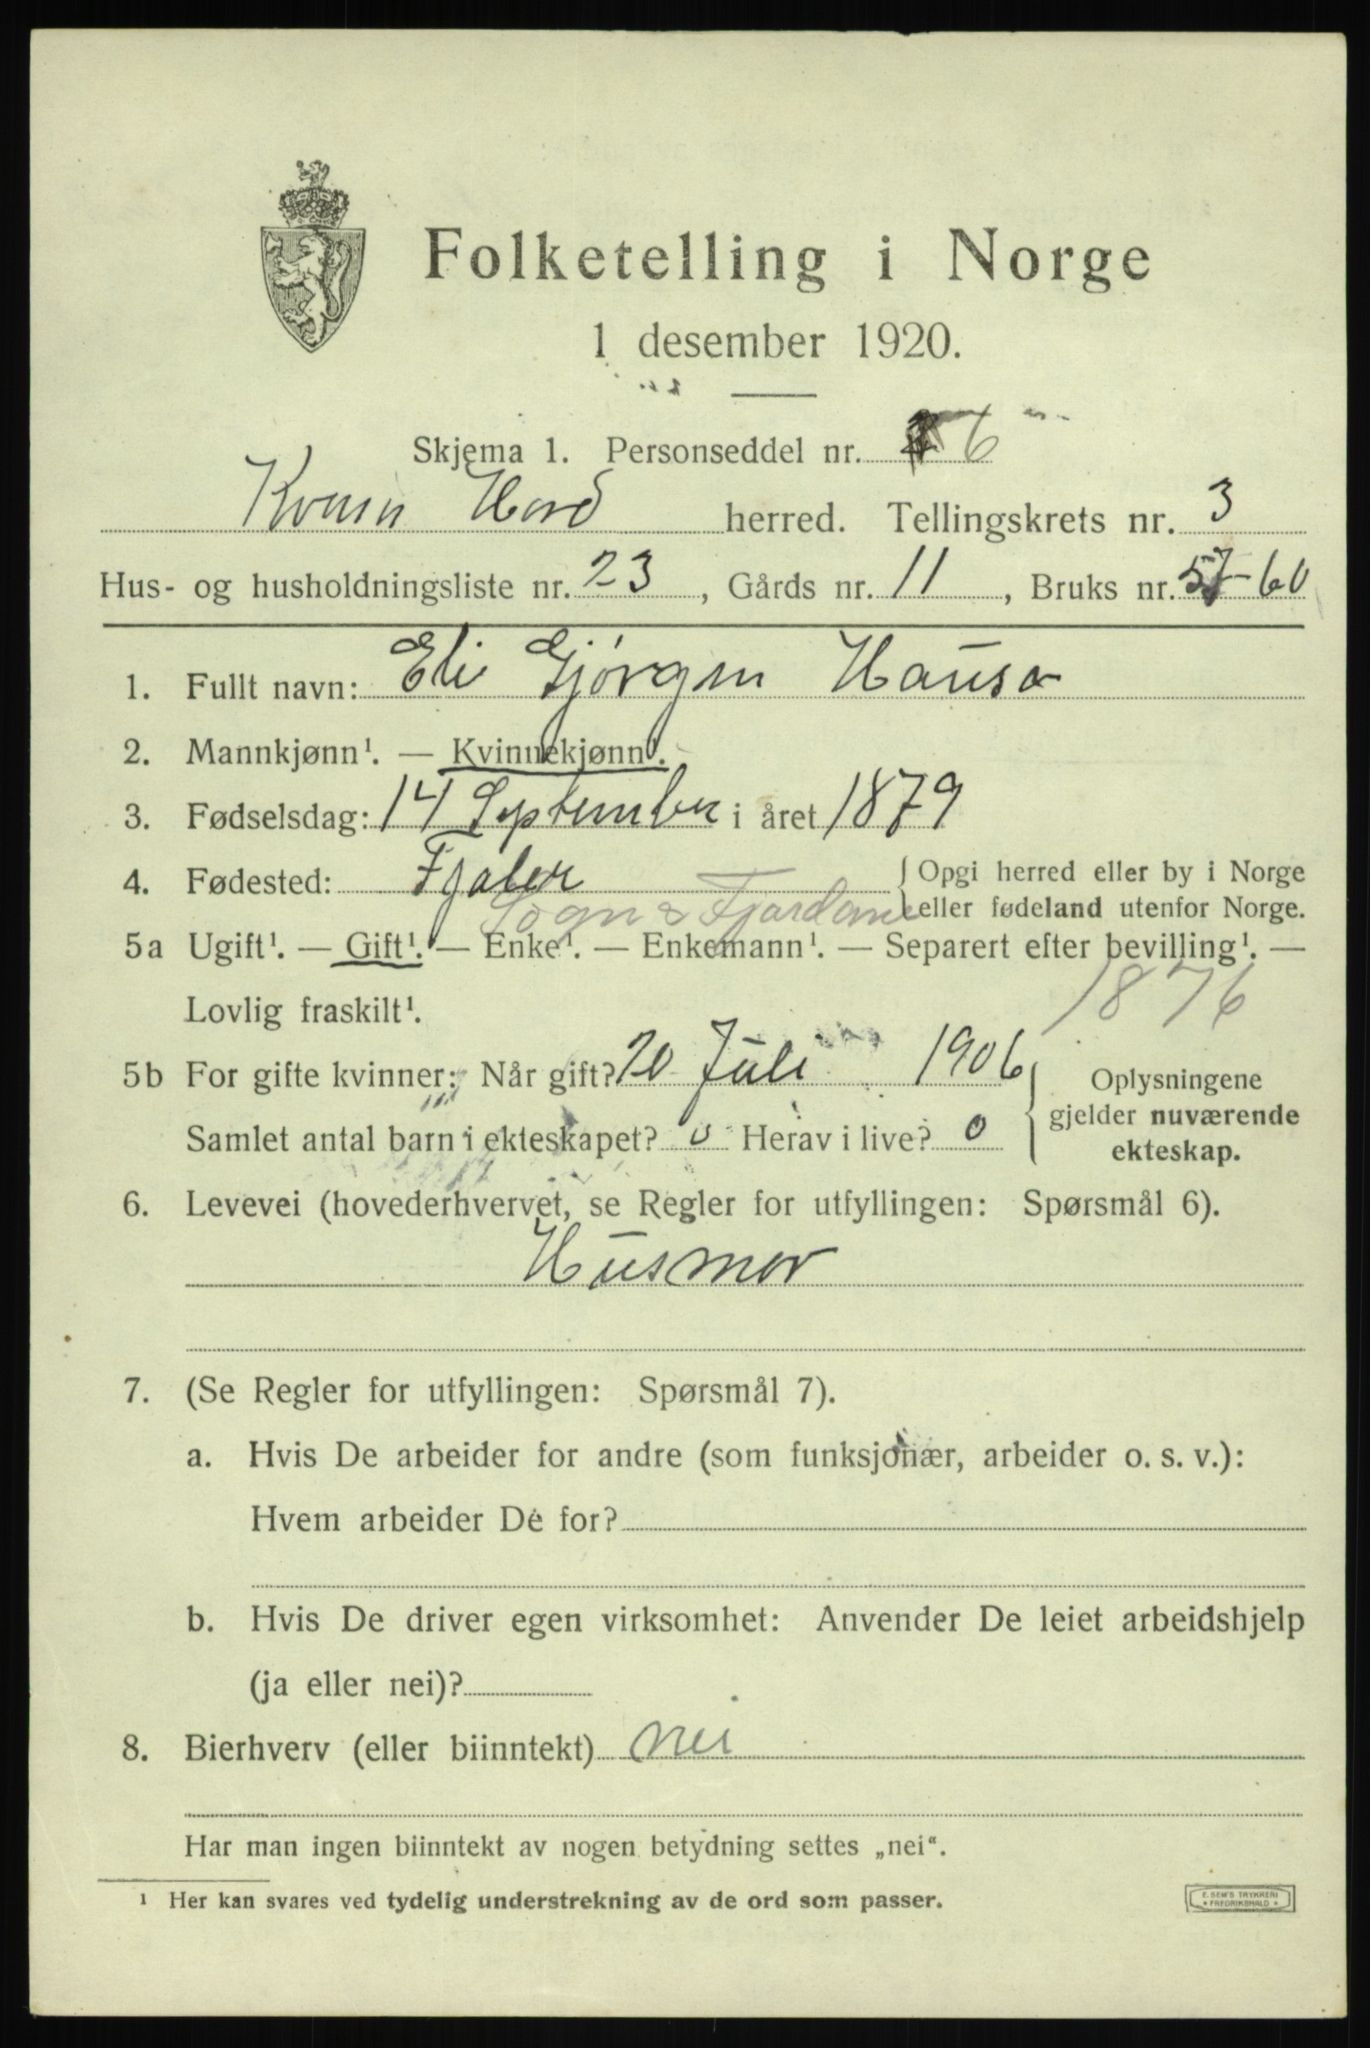 Folketelling i Norge
1 desember 1920.
Skjema 1. Personseddel nr. 6
Kvam Hord herred. Tellingskrets nr. 3
Hus- og husholdningsliste nr. 23, Gårds nr. 11, Bruks nr. 57-60
1. Fullt navn: Eli Gjørgen Hauso
2. Mannkjønn¹. — Kvinnekjønn¹.
3. Fødselsdag: 14 September i året 1879
4. Fødested: Fjaler { Opgi herred eller by i Norge
Sogn & Fjordane eller fødeland utenfor Norge.
5a Ugift¹. — Gift¹. — Enke¹. — Enkemann¹. — Separert efter bevilling¹. —
Lovlig fraskilt¹. 1876
5b For gifte kvinner: Når gift? 20 Juli 1906 { Oplysningene
gjelder nuværende
Samlet antal barn i ekteskapet? 0 Herav i live? 0
ekteskap.
6. Levevei (hovederhvervet, se Regler for utfyllingen: Spørsmål 6).
Husmor
7. (Se Regler for utfyllingen: Spørsmål 7).
a. Hvis De arbeider for andre (som funksjonær, arbeider o. s. v.):
Hvem arbeider De for?
b. Hvis De driver egen virksomhet: Anvender De leiet arbeidshjelp
(ja eller nei)?
8. Bierhverv (eller biinntekt) nei
Har man ingen biinntekt av nogen betydning settes „nei“.
¹ Her kan svares ved tydelig understrekning av de ord som passer.
E. SEM'S TRYKKERI
* FREDRIKSHALD *